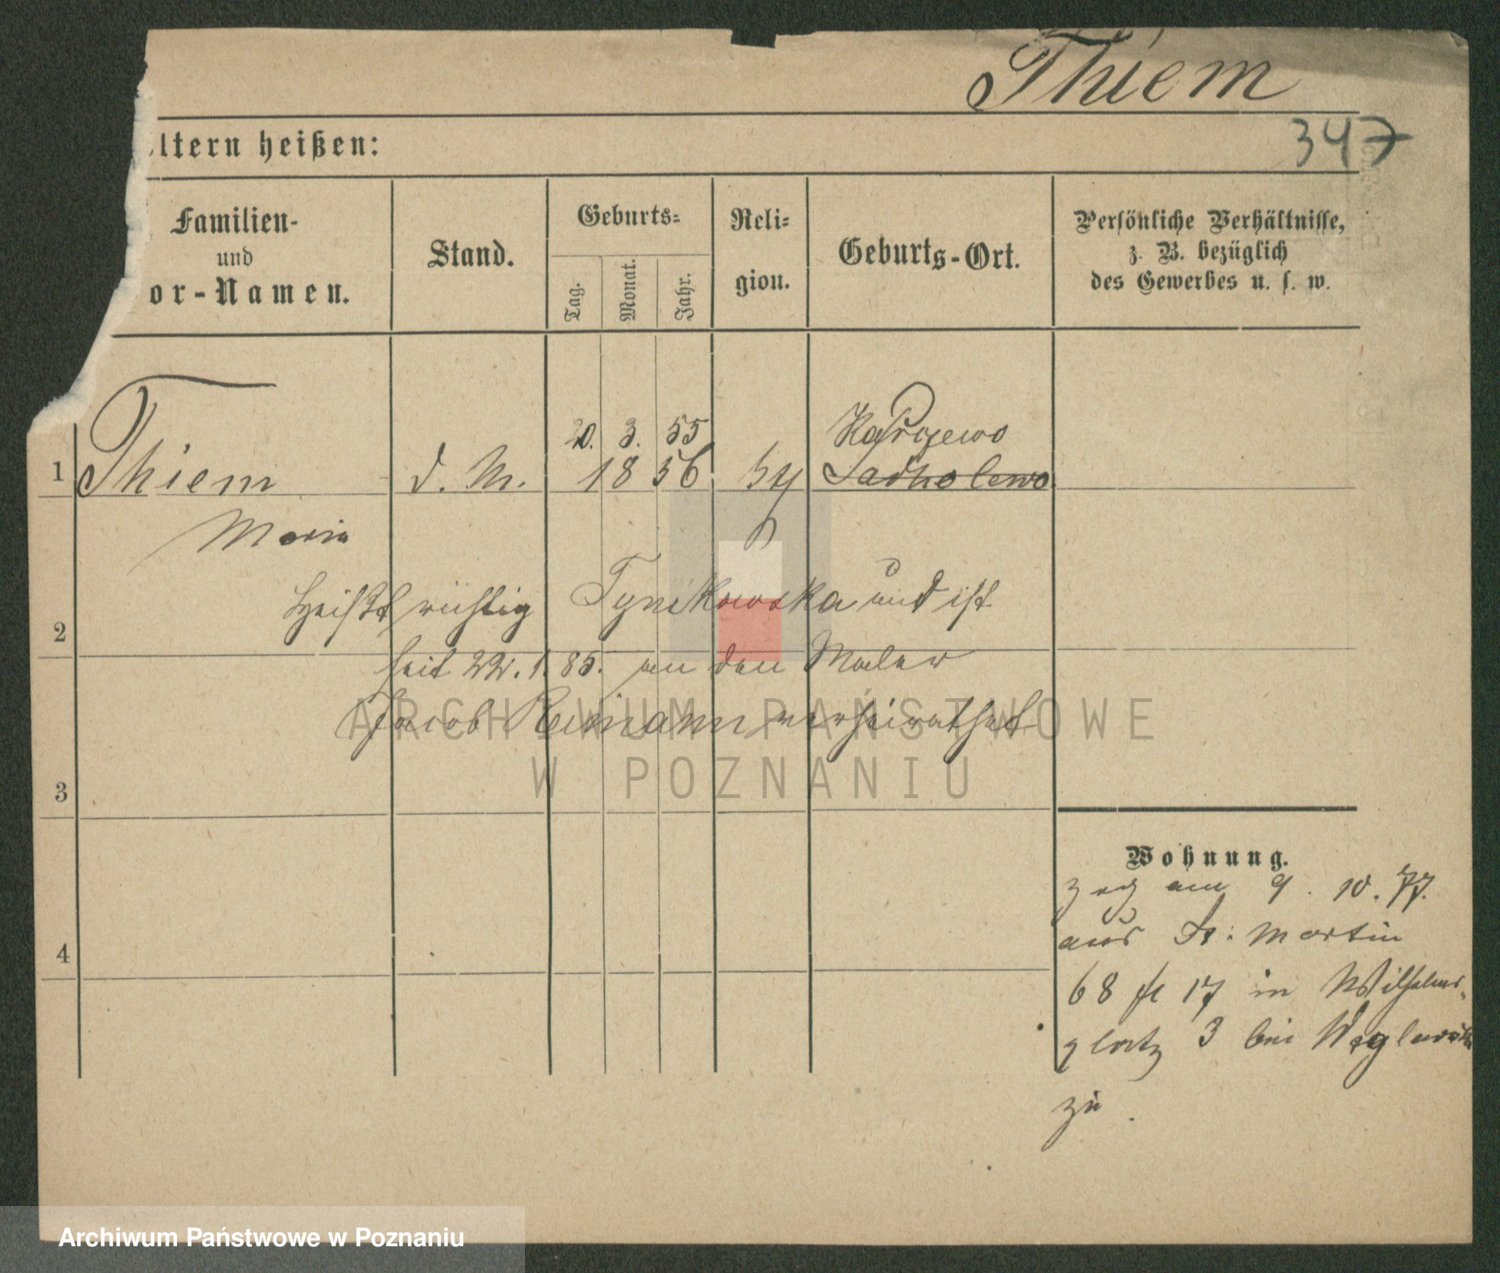 Thiem
347
ltern heißen:
Familien-
und
or-Namen.
Stand.
Geburts-
Tag.
Monat.
Jahr.
Reli-
gion.
Geburts-Ort.
Persönliche Verhältnisse,
z. B. bezüglich
des Gewerbes u. s. w.
20. 3. 55
1 Thiem d. M. 1856
Maria
heißt richtig Tymkowska und ist
2
seit 22. 1. 85. an den Maler
Jacob Reimann verheirathet
ARCHIWUM PAŃSTWOWE
W POZNANIU
3
Wohnung.
zog am 9. 10. 77.
aus St: Martin
4
68 17 in Wilhelms-
platz 3 bei
zu.
Archiwum Państwowe w Poznaniu